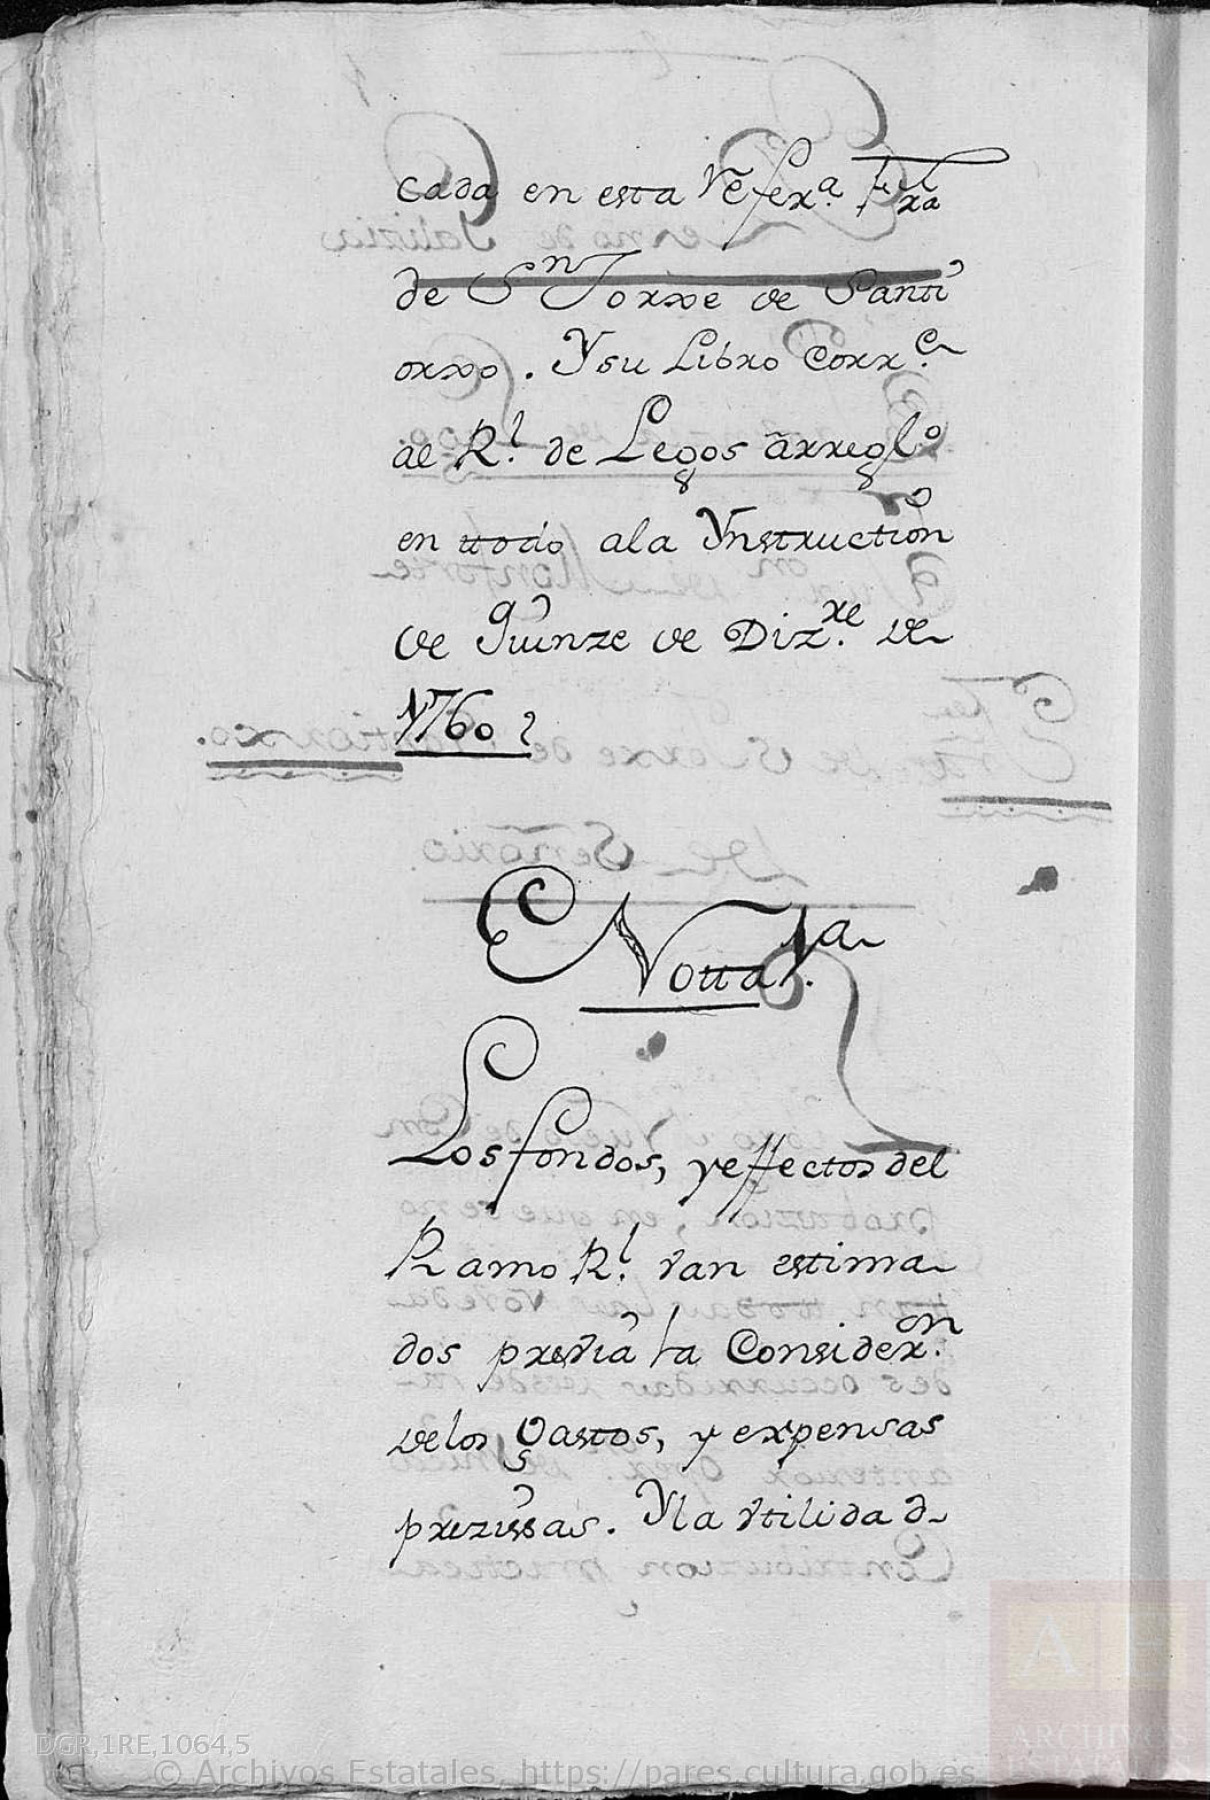 cada en esta Refex.ª Fel.xa
de S.n Jorxe de Santi
orxo. Y su Libro Corr.e
al R.l de Legos arregl.o
en ttodo ala Ynstruction
de Quinze de Diz.xe de
1760
Notta 1.a
Los fondos, y effectos del
Ramo R.l van estima
dos previa la Consider.on
delos Gastos, y expensas
prezissas. Y la vtilidad
DGR,1RE,1064,5
© Archivos Estatales, https://pares.cultura.gob.es
AE
ARCHIVOS
ESTATALES